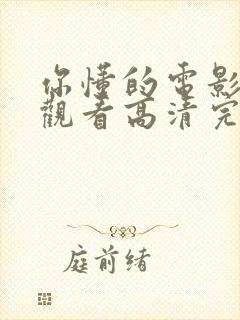 你懂的電影
觀看高清完
庭前绪